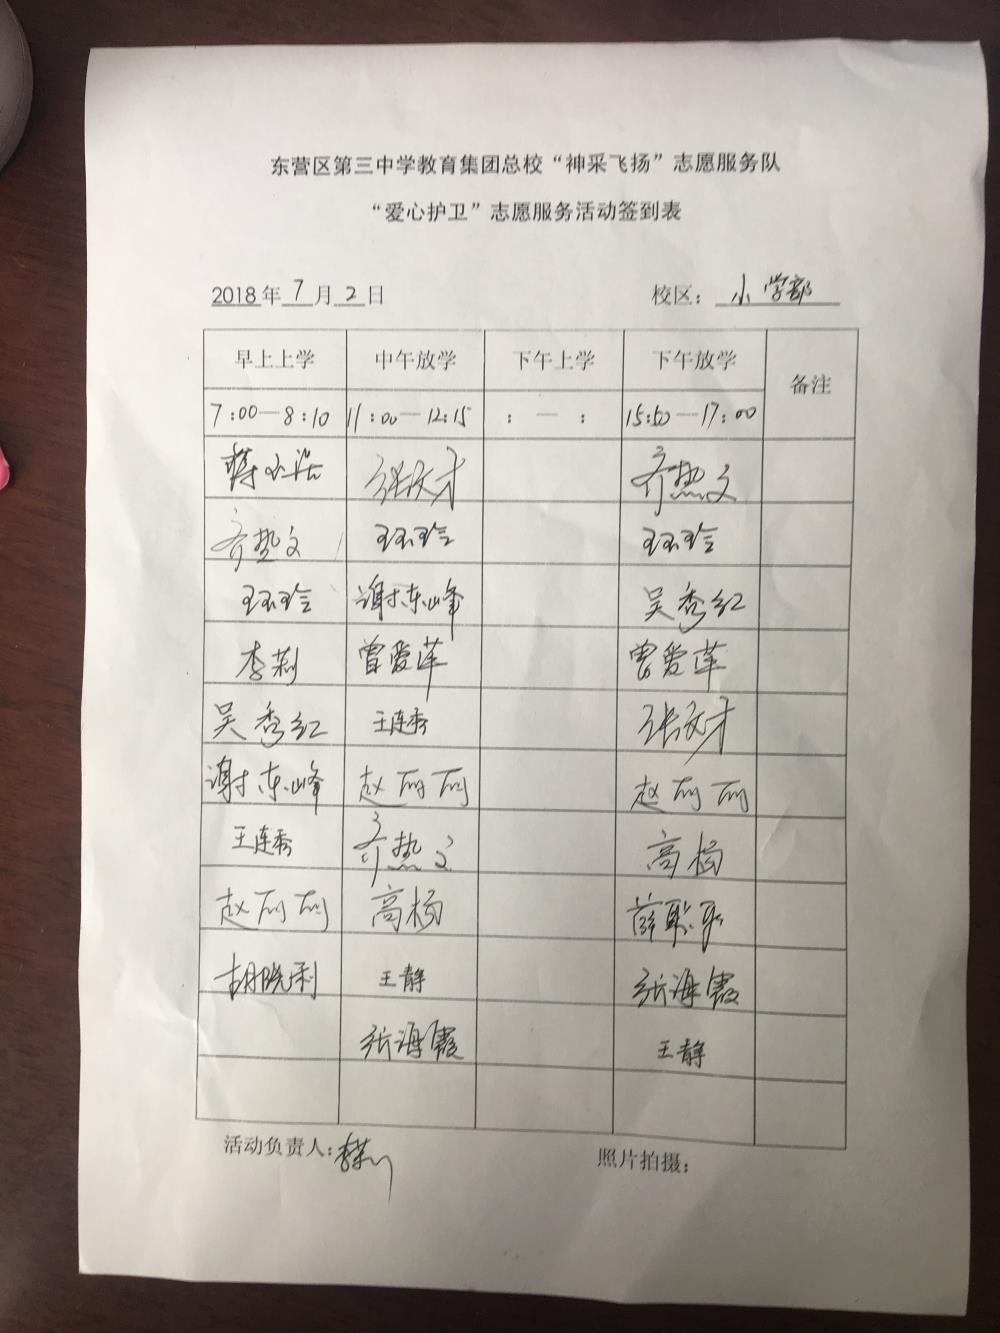 东营区第三中学教育集团总校“神采飞扬”志愿服务队
“爱心护卫”志愿服务活动签到表
2018年 7 月 2 日 校区: 小学部
早上上学 中午放学 下午上学 下午放学 备注
7:00—8:10 11:00—12:15 : — : 15:50—17:00
张文才 齐热文
齐热文 王环玲 王环玲
王环玲 谢东峰 吴秀红
李莉 曾爱萍 曾爱萍
吴秀红 王连秀 张文才
谢东峰 赵丽丽 赵丽丽
王连秀 齐热文 高杨
赵丽丽 高杨 薛
胡晓利 王静 张海霞
张海霞 王静
活动负责人: 照片拍摄: